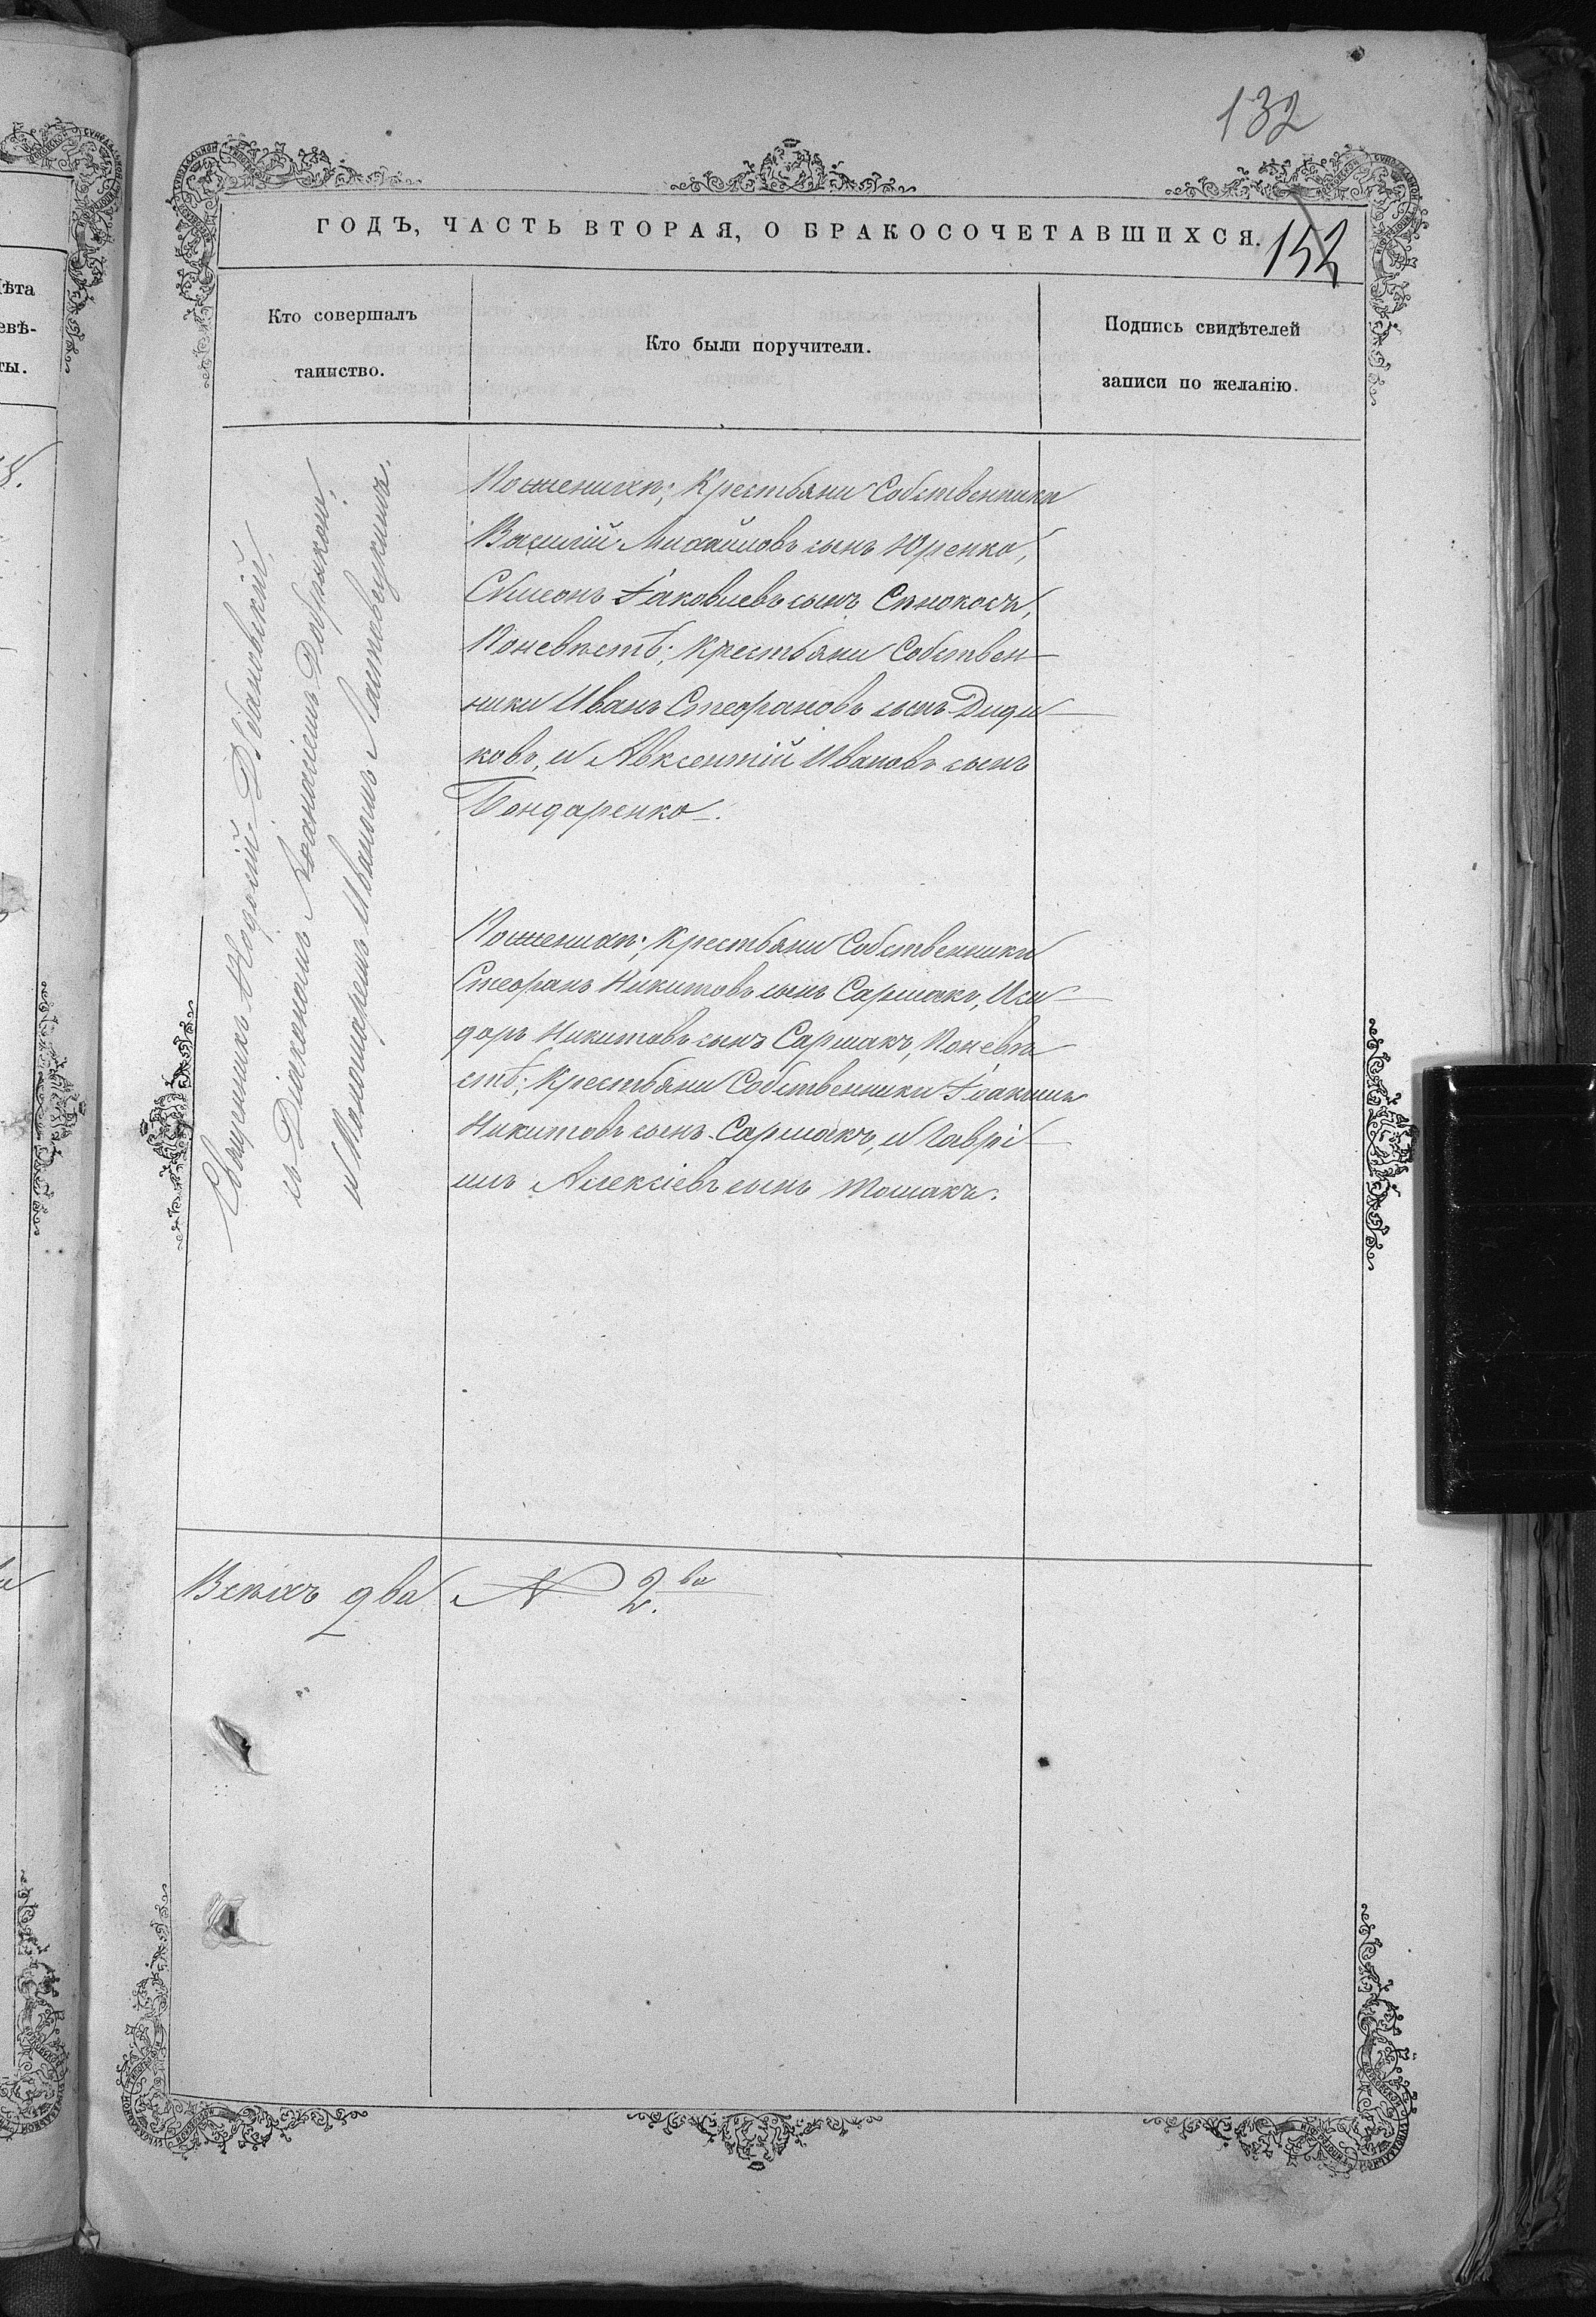 132
ГОДЪ, ЧАСТЬ ВТОРАЯ, О БРАКОСОЧЕТАВШИХСЯ.
152
Кто совершалъ
таинство.
Кто были поручители.
Подпись свидѣтелей
записи по желанію.
Священникъ Ѳеодосій
съ Діакономъ Аѳанасіемъ
и Пономаремъ Иваномъ Ластовецкимъ.
Пожених; Крестьяни Собственники
Василій Михайловъ сынъ Юренко,
Сѵмеонъ Іаковлевъ сынъ Снюкосъ,
Поневѣстѣ; Крестьяни Собствен-
ники Иванъ Стефановъ сынъ Диди-
ковъ, и Авксентій Ивановъ сынъ
Бондаренко.
Пожених; Крестьяни Собственники
Стефанъ Никитовъ сынъ Сармакъ, Иси-
доръ Никитовъ сынъ Сармакъ, Поневѣ
стѣ; Крестьяни Собственники Іоакимъ
Никитовъ сынъ Сармакъ, и Гаврі-
илъ Алексіевъ сынъ Томакъ.
Всѣхъ два № 2.ва
ѣта
евѣ-
ты.